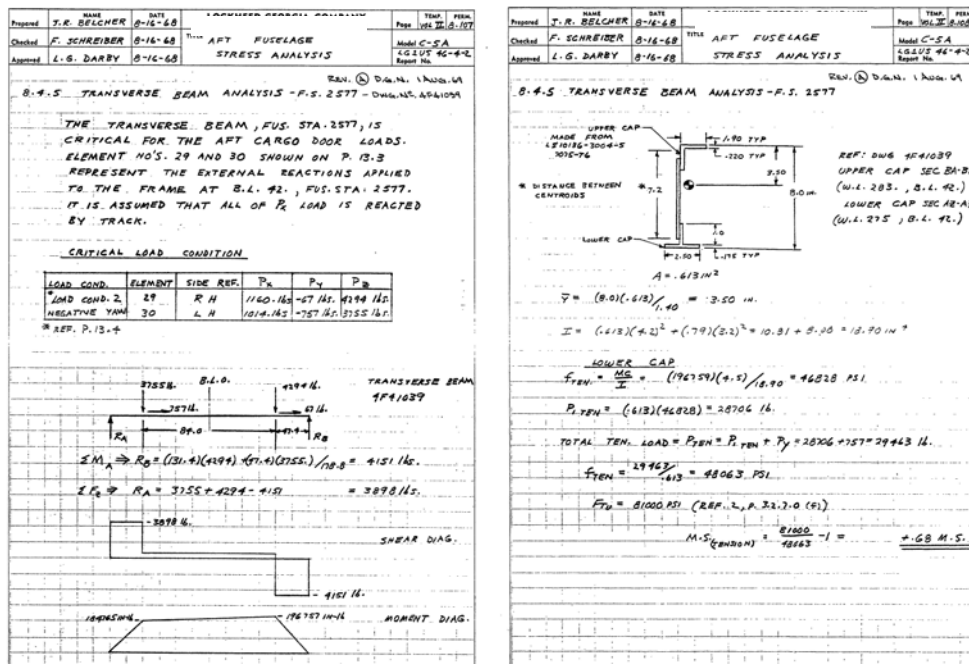 NAME DATE TEMP. PERM.
Prepared J.R. BELCHER 8-16-68 Page VOL II 8.107
Checked F. SCHREIBER 8-16-68 TITLE AFT FUSELAGE Model C-5A
Approved L.G. DARBY 8-16-68 STRESS ANALYSIS LG1US 46-4-2
Report No.
REV. Ⓐ D.G.N. 1 AUG. 69
8.4.5 TRANSVERSE BEAM ANALYSIS - F.S. 2577 - DWG. NO. 4F41039
THE TRANSVERSE BEAM, FUS. STA. 2577, IS
CRITICAL FOR THE AFT CARGO DOOR LOADS.
ELEMENT NO'S. 29 AND 30 SHOWN ON P. 13.3
REPRESENT THE EXTERNAL REACTIONS APPLIED
TO THE FRAME AT B.L. 42., FUS. STA. 2577.
IT IS ASSUMED THAT ALL OF Px LOAD IS REACTED
BY TRACK.
CRITICAL LOAD CONDITION
LOAD COND. ELEMENT SIDE REF. Px Py Pz
*LOAD COND. 2 29 R H 1160.lbs -67 lbs. 4294 lbs.
NEGATIVE YAW 30 L H 1014.lbs -757 lbs. 3755 lbs.
* REF. P. 13.4
3755 lb. B.L.O. 4294 lb. TRANSVERSE BEAM
4F41039
757 lb. 67 lb.
RA 84.0 47.4 RB
ΣMA ⇒ RB = (131.4)(4294) + (47.4)(3755.)/178.8 = 4151 lbs.
ΣFz ⇒ RA = 3755 + 4294 - 4151 = 3898 lbs.
- 3898 lb.
SHEAR DIAG.
- 4151 lb.
184765 IN-lb - 196757 IN-lb MOMENT DIAG.
NAME DATE TEMP. PERM.
Prepared J.R. BELCHER 8-16-68 Page VOL II 8.108
Checked F. SCHREIBER 8-16-68 TITLE AFT FUSELAGE Model C-5A
Approved L.G. DARBY 8-16-68 STRESS ANALYSIS LG1US 46-4-2
Report No.
REV. Ⓐ D.G.N. 1 AUG. 69
8.4.5 TRANSVERSE BEAM ANALYSIS - F.S. 2577
UPPER CAP
MADE FROM
LS10186-3004-5
7075-T6
1.90 TYP
.220 TYP
3.50
* DISTANCE BETWEEN
CENTROIDS
* 7.2
8.0 in.
REF: DWG 4F41039
UPPER CAP SEC BA-BA
(W.L. 283. , B.L. 42.)
LOWER CAP SEC AZ-AZ
(W.L. 275 , B.L. 42.)
LOWER CAP
1.0
2.50 .175 TYP
A = .613 IN²
ȳ = (8.0)(.613)/1.40 = 3.50 IN.
I = (.613)(4.2)² + (.79)(3.2)² = 10.81 + 8.90 = 18.90 IN⁴
LOWER CAP
fTEN. = MC/I = (196759)(4.5)/18.90 = 46828 PSI
P1 TEN = (.613)(46828) = 28706 lb.
TOTAL TEN. LOAD = PTEN = P1 TEN + Py = 28706 + 757 = 29463 lb.
fTEN = 29463/.613 = 48063 PSI.
FTU = 81000 PSI (REF. 2, P. 3.2.7.0 (f))
M.S.(TENSION) = 81000/48063 - 1 = +.68 M.S.